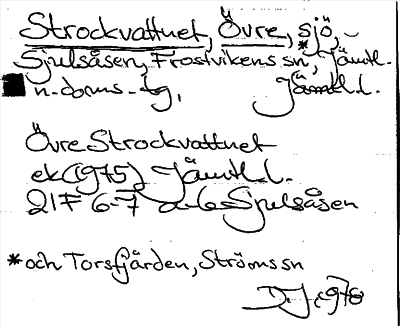 Strockvattnet, Övre, sjö,
Sjulsåsen,* Frostvikens sn, Jämtl.
n. doms-
Jämtl.l.
Övre Strockvattnet
ek (1975) Jämtl.l.
21F 6-7 a-b Sjulsåsen
*och Torsfjärden, Ströms sn
D.J. 1978